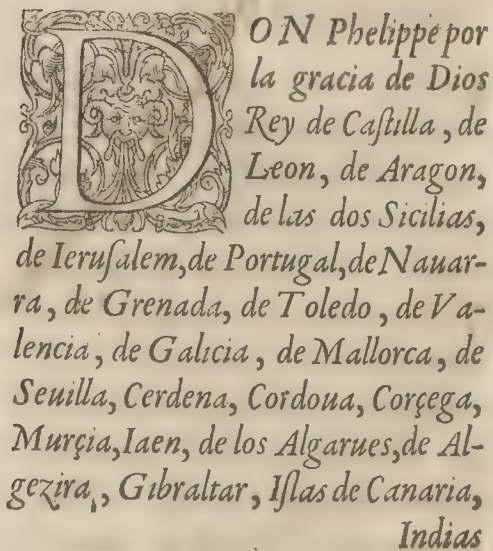 DON Phelippe por
la gracia de Dios
Rey de Caſtilla, de
Leon, de Aragon,
de las dos Sicilias,
de Ieruſalem, de Portugal, de Nauar-
ra, de Grenada, de Toledo, de Va-
lencia, de Galicia, de Mallorca, de
Seuilla, Cerdena, Cordoua, Corçega,
Murçia, Iaen, de los Algarues, de Al-
gezira, Gibraltar, Iſlas de Canaria,
Indias